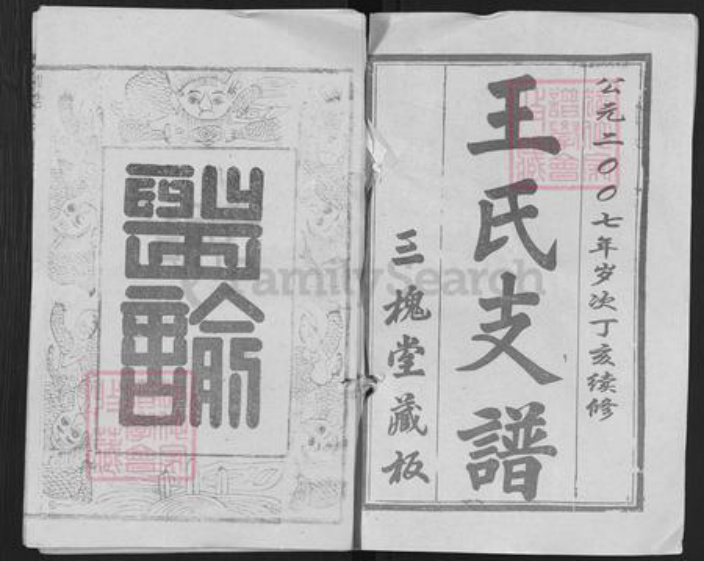 公元二00七年岁次丁亥续修
王氏支譜
三槐堂藏板
諭
FamilySearch